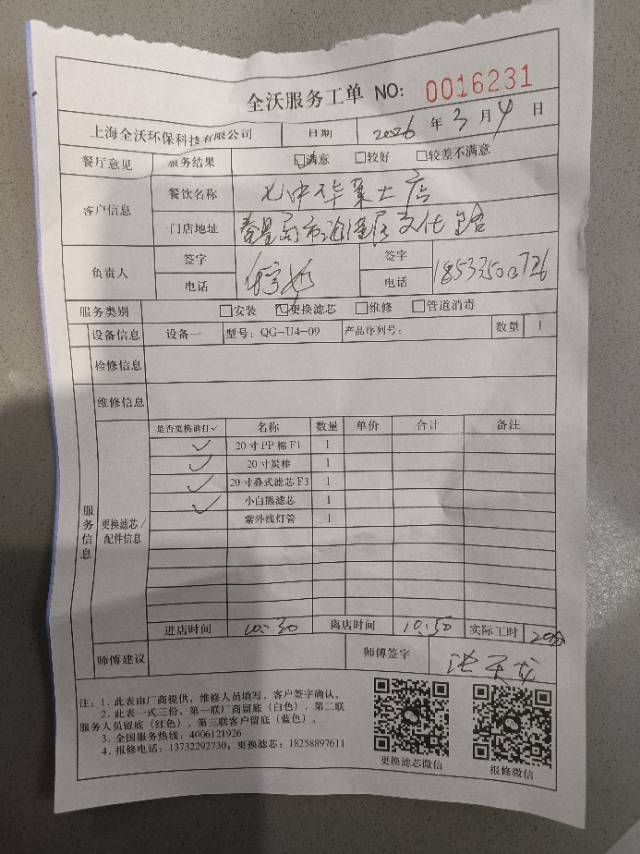 全沃服务工单 NO: 0016231
上海全沃环保科技有限公司 日期 2026 年 3 月 4 日
餐厅意见 服务结果 ☑满意 □较好 □较差不满意
客户信息 餐饮名称 士店
门店地址 秦皇岛市海港区文化路
负责人 签字 签字
电话 电话 18533500726
服务类别 □安装 ☑更换滤芯 □维修 □管道消毒
设备信息 设备一 型号: QG-U4-09 产品序列号: 数量 1
检修信息
维修信息
服务信息
更换滤芯/配件信息
是否更换请打✓ 名称 数量 单价 合计 备注
✓ 20寸PP棉F1 1
✓ 20寸炭棒 1
✓ 20寸叠式滤芯F3 1
✓ 小白熊滤芯 1
紫外线灯管 1
进店时间 10:30 离店时间 10:50 实际工时 20分
师傅建议 师傅签字 张天龙
注: 1. 此表由厂商提供, 维修人员填写, 客户签字确认。
2. 此表一式三份, 第一联厂商留底 (白色), 第二联
服务人员留底 (红色), 第三联客户留底 (蓝色)。
3. 全国服务热线: 4006121926
4. 报修电话: 13732292730, 更换滤芯: 18258897611
更换滤芯微信 报修微信